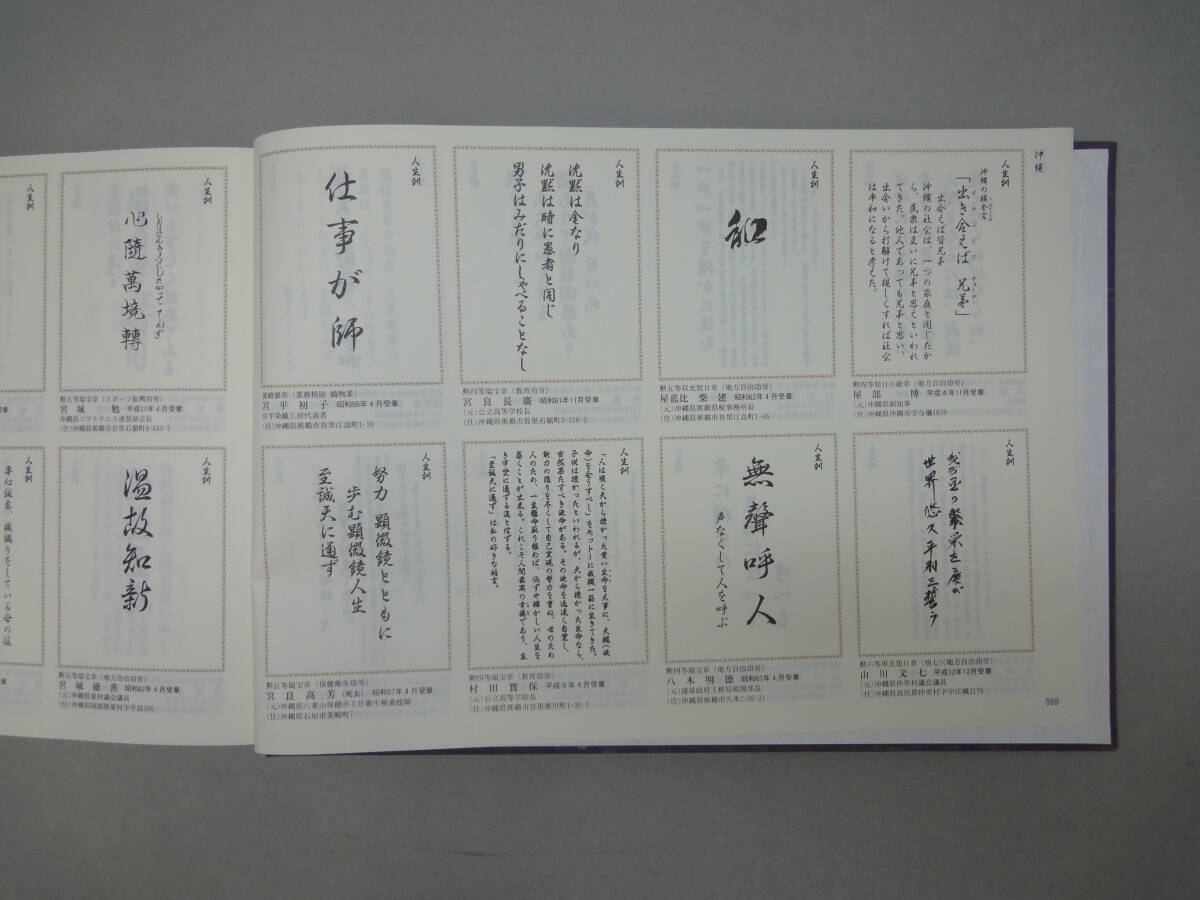 沖縄
人生訓
沖縄の横金言
「出き合えば 兄弟」
出合えば皆兄弟
沖縄の社会は、一つの家庭と同じだか
ら、民衆は互いに兄弟と思えといわれ
てきた。他人であっても兄弟と思い、
出会いから打解けて親しくすれば社会
は平和になると考えた。
勲四等旭日小綬章(地方自治功労)
屋部 博 平成4年11月受章
(元)沖縄県副知事
(住)沖縄県沖縄市字与儀1659
人生訓
和
勲五等双光旭日章(地方自治功労)
屋嘉比 柴建 昭和62年4月受章
(元)沖縄県那覇県税事務所長
(住)沖縄県那覇市首里汀良町1-46
人生訓
沈黙は金なり
沈黙は時に愚者と同じ
男子はみだりにしゃべることなし
勲四等瑞宝章(教育功労)
宮良長廣 昭和61年11月受章
(元)公立高等学校長
(住)沖縄県那覇市首里石嶺町3-158-3
人生訓
仕事が師
黄綬褒章(業務精励 織物業)
宮平初子 昭和56年4月受章
宮平染織工房代表者
(住)沖縄県那覇市首里汀良町1-30
人生訓
我が国の繁栄を慶び
世界悠久平和を誓う
勲六等単光旭日章(旭七)(地方自治功労)
山川文七 平成12年12月受章
(元)沖縄県仲里村議会議員
(住)沖縄県島尻郡仲里村字宇江城2176
人生訓
無聲呼人
声なくして人を呼ぶ
勲四等瑞宝章(地方自治功労)
八木明徳 昭和61年4月受章
(元)琉球政府主税局税関部長
(住)沖縄県那覇市久米2-30-21
人生訓
「人は須く天から授かった貴い生命を大事に、天職(使
命)を全うすべし」をモットーに教職一筋に生きてきた。
子供は授かったといわれるが、天から授かった生命なら、
当然果たすべき使命がある。その使命を逸速く自覚し、
能力の限りを尽くして自己実現の努力を重ね、世のため
人のため、一生懸命取り組めば、必ずや輝かしい人生を
築くことが出来る。これこそ人間最高の幸福であり、生
き甲斐に通ずる道と信ずる。
「至誠天に通ず」は私の好きな格言。
勲四等瑞宝章(教育功労)
村田實保 平成9年4月受章
(元)公立高等学校長
(住)沖縄県那覇市首里寒川町1-30-7
人生訓
努力 顕微鏡とともに
歩む顕微鏡人生
至誠天に通ず
勲五等瑞宝章(保健衛生功労)
宮良高芳(死去) 昭和57年4月受章
(元)沖縄県八重山保健所主任衛生検査技師
(住)沖縄県石垣市美崎町7
569
人生訓
心隨萬境轉
勲五等瑞宝章(スポーツ振興功労)
宮城 勉 平成11年4月受章
沖縄県ソフトテニス連盟副会長
(住)沖縄県那覇市首里石嶺町4-443-7
人生訓
受章
人生訓
温故知新
勲五等瑞宝章(地方自治功労)
宮城徳善 昭和62年4月受章
(元)沖縄県東村議会議員
(住)沖縄県国頭郡東村字平良506
人生訓
受章